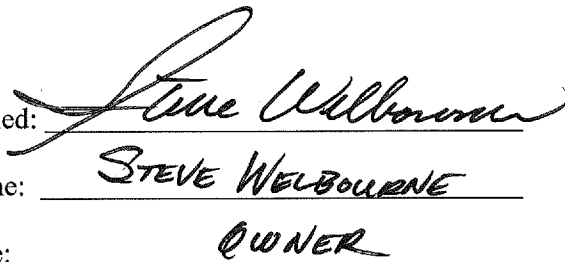 ned: Steve Welbourne
ne: STEVE WELBOURNE
e: OWNER